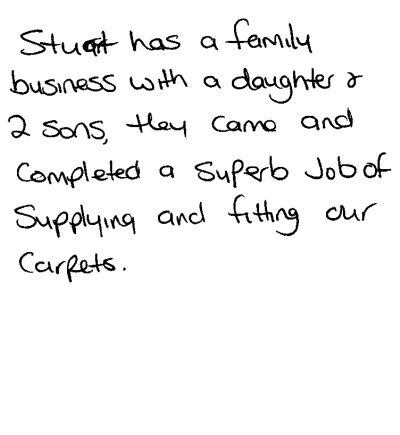 Stuart has a family
business with a daughter &
2 sons, they came and
completed a superb job of
supplying and fitting our
carpets.